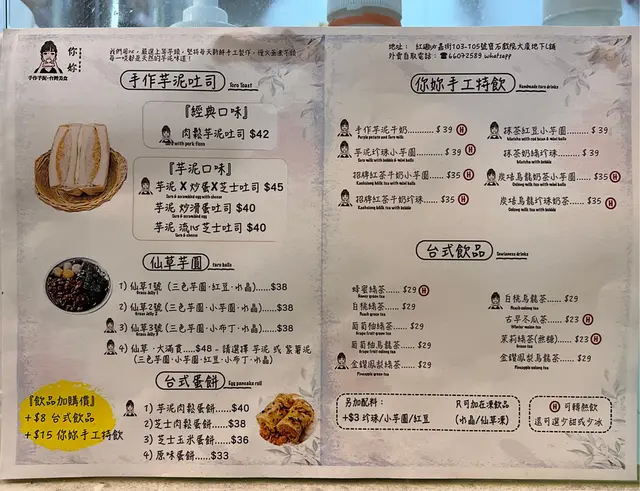 你妳
手作芋泥·台灣美食
我們用心，嚴選上等芋頭，堅持每天新鮮手工製作，慢火蒸煮芋頭
每一啖都是天然的芋泥味道！
手作芋泥吐司
Taro Toast
『經典口味』
肉鬆芋泥吐司 $42
『芋泥口味』
芋泥 X 炒蛋 X 芝士吐司 $45
Taro & scrambled egg with cheese
芋泥 炒滑蛋吐司 $40
Taro & scrambled egg
芋泥 流心芝士吐司 $40
Taro & cheese
仙草芋圓
taro balls
1) 仙草1號 (三色芋圓·紅豆·水晶)......$38
Grass Jelly 1
2) 仙草2號 (三色芋圓·小芋圓·水晶)......$38
Grass Jelly 2
3) 仙草3號 (三色芋圓·小布丁·水晶)......$38
Grass Jelly 3
4) 仙草·大滿貫......$48 - 請選擇 芋泥 或 紫薯泥
(三色芋圓·小芋圓·紅豆·小布丁·水晶)
台式蛋餅
Egg pancake roll
1) 芋泥肉鬆蛋餅....$40
2) 芝士肉鬆蛋餅....$38
3) 芝士玉米蛋餅....$36
4) 原味蛋餅......$33
『飲品加購價』
+$8 台式飲品
+$15 你妳手工特飲
地址： 紅磡必嘉街103-105號寶石戲院大廈地下C鋪
外賣自取電話：☎66072589 whatsapp
你妳手工特飲
Handmade taro drinks
手作芋泥千奶......... $ 39 H
Purple potato and Taro milk
芋泥珍珠小芋圓...... $ 39 H
Taro milk with bobble & mini balls
招牌紅茶千奶小芋圓...... $35 H
招牌紅茶千奶珍珠...... $35 H
抹茶紅豆小芋圓...... $ 39
抹茶奶綠珍珠...... $ 39
炭培烏龍奶茶小芋圓...$35 H
炭培烏龍珍珠奶茶...$35 H
台式飲品
Tawianese drinks
蜂蜜綠茶...... $29 H
Honey green tea
白桃綠茶...... $29
Peach green tea
葡萄柚綠茶...... $29
Grape fruit green tea
葡萄柚烏龍茶...... $29
金鑽鳳梨綠茶.... $29
Pineapple green tea
白桃烏龍茶.... $29
Peach oolong tea
古早冬瓜茶.... $23 H
Winter melon tea
茉莉綠茶(無糖).... $23 H
金鑽鳳梨烏龍茶.... $29
Pineapple oolong tea
另加配料： 只可加在凍飲品
+$3 珍珠/小芋圓/紅豆 (水晶/仙草凍)
H 可轉熱飲
還可選少甜或少冰